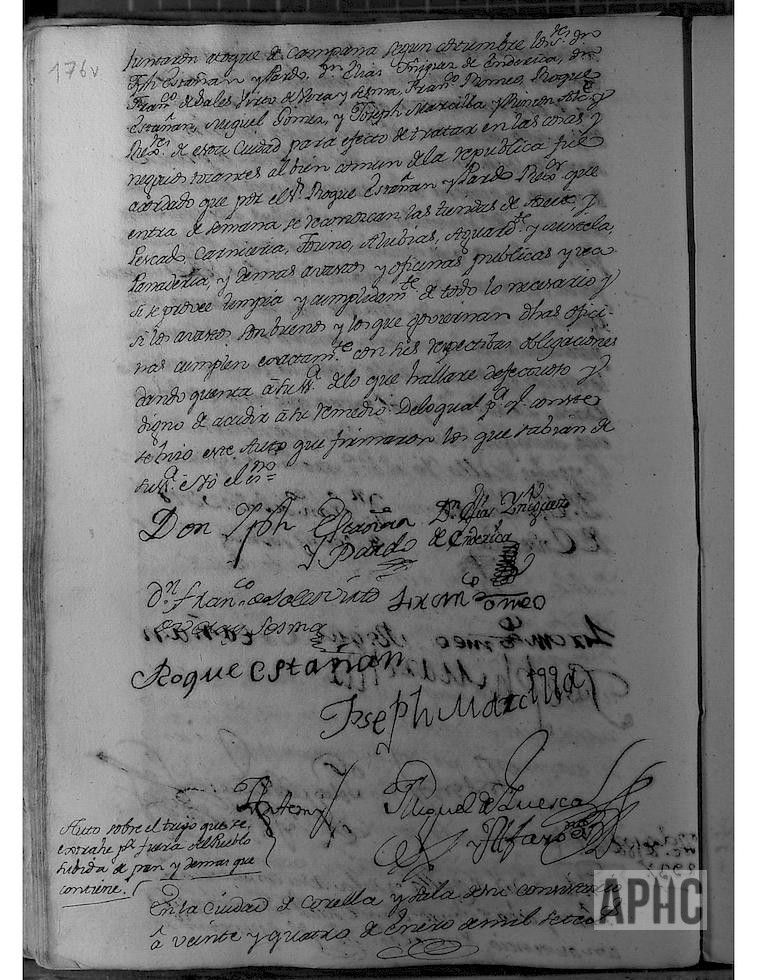 176v
Juntaron atoque de Campana segun costumbre los S.res D.n
Jph Estañan y Pardo, D.n Elias Yñiguez de Enderica, D.n
Fran.co de Sales Virto de Vera y Sesma, Fran.co Romeo, Roque
Estañan, Miguel Gomez, y Joseph Marcilla y Rincon Alc.e y
Rex.res de esta Ciudad para efecto de tratar en las cosas y
negocios tocantes al bien comun de la republica fue
acordado que por el S.r Roque Estañan y Pardo Rex.or que
entra de semana se reconozcan las tiendas de Azeite, y
Pescado, Carniceria, Horno, Alubias, Aguard.te y mistela,
Panaderia, y demas avastos y oficinas publicas y vea
si se provee limpia y cumplidam.te de todo lo necesario y
si los avastos son buenos y los que goviernan dhas ofici-
nas cumplen exactam.te con sus respectibas obligaciones
dando quenta a su S.a de lo que hallare defectuoso y
digno de acudir a su remedio: Delo qual p.a q.e conste
se hizo este Auto que firmaron los que sabian de
su S.a e Yo el es.no =
Don Jph Estañan D.n Elias Yniguez
y Pardo de Enderica
D.n Fran.co de Sales Virto Fran.co Romeo
de Vera y Sesma
Roque Estañan
Joseph Marcilla
Ante mi Miguel de Luesca
y Alfaro
Auto sobre el trigo que se
extrahe p.a fuera del Pueblo
subida de pan y demas que
contiene.
En la Ciudad de Corella y Sala de su Consistorio
a veinte y quatro de Enero de mil setez.s
APHC